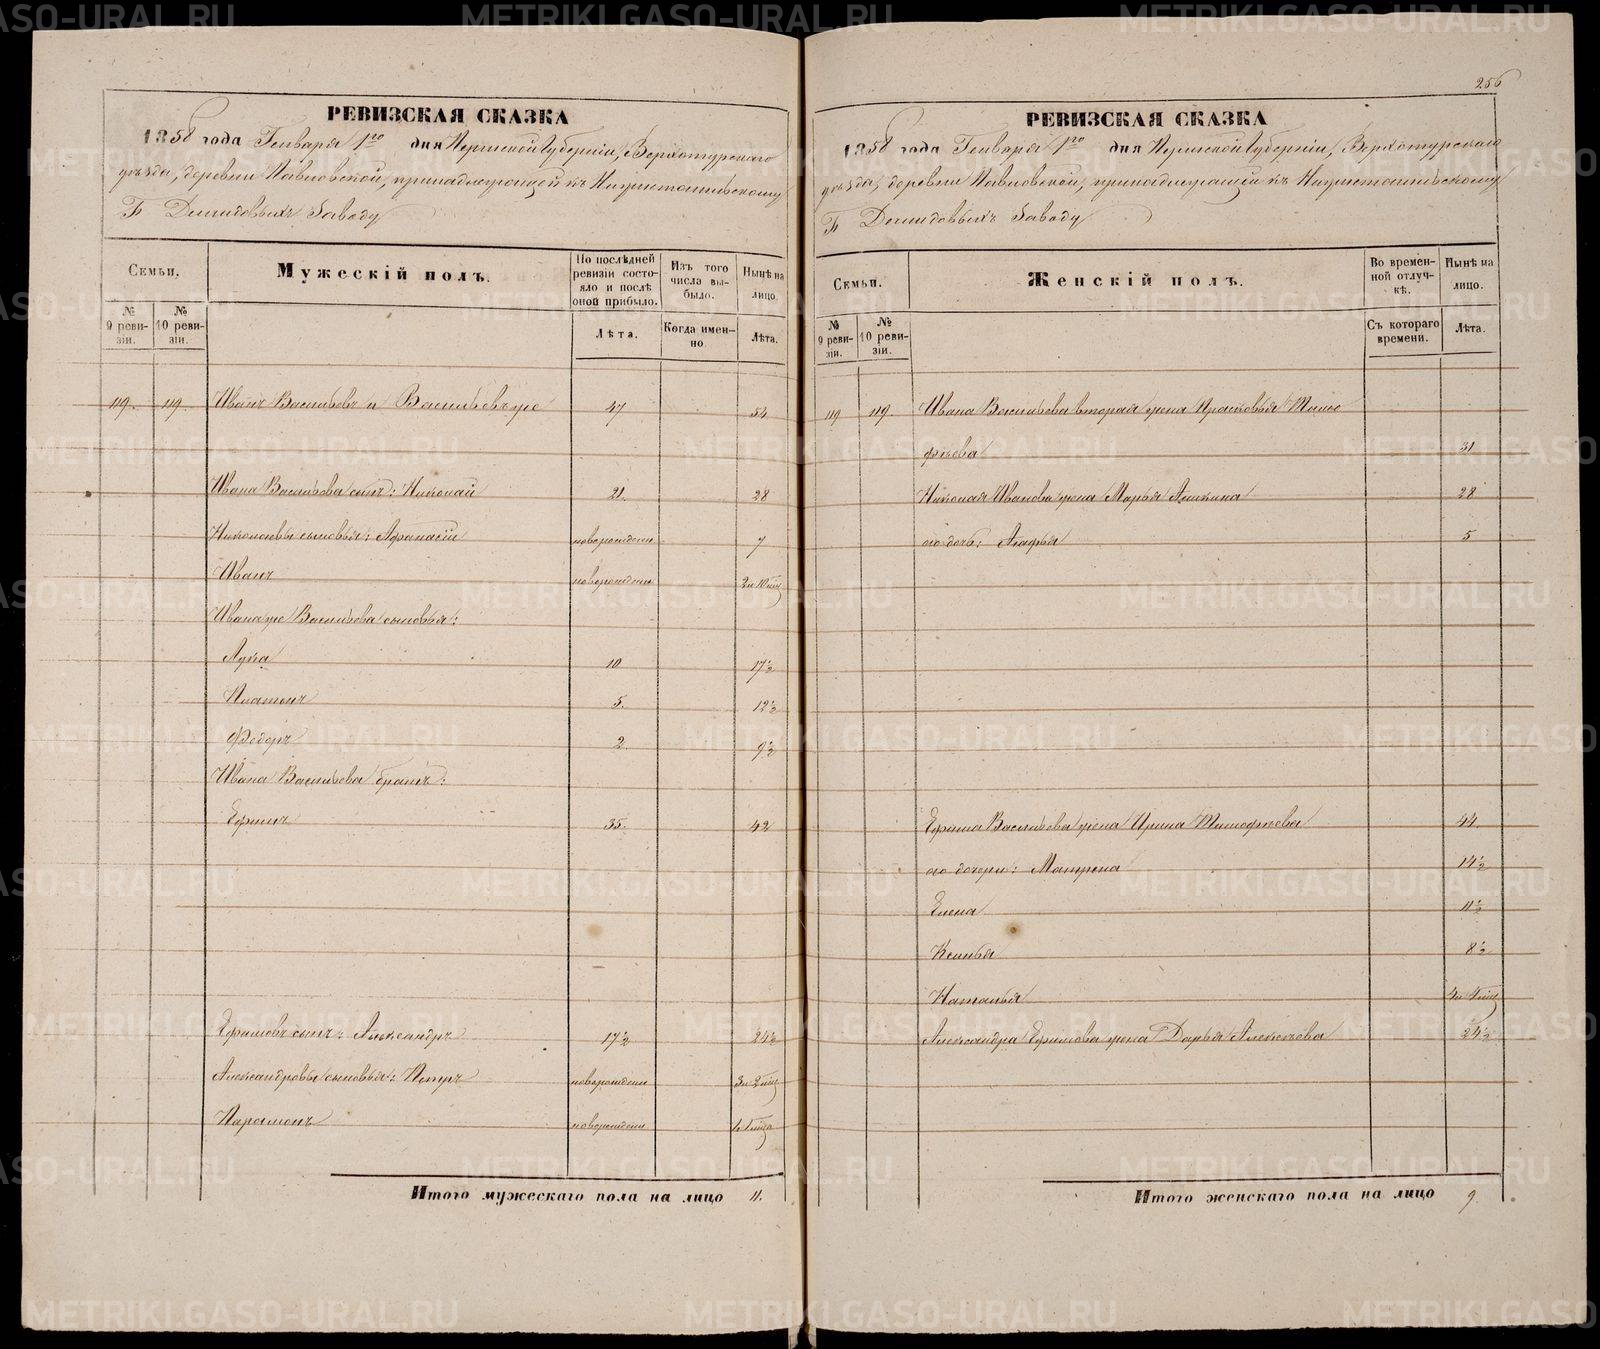 РЕВИЗСКАЯ СКАЗКА
1858 года Генваря 1го дня Пермской Губерніи, Верхотурскаго
уѣзда, деревни Павловской, принадлежащей къ
Гг Демидовыхъ Заводу
Семьи.
Мужескій полъ.
По послѣдней ревизіи состояло и послѣ оной прибыло.
Изъ того числа выбыло.
Нынѣ на лицо.
№ 9 ревизіи.
№ 10 ревизіи.
Лѣта.
Когда именно
Лѣта.
119. 119. Иванъ Васильевъ Васильевъ же 47 54
Ивана Васильева сынъ: Николай 21. 28
Николаевы сыновья: Афанасій новорожден 7
Иванъ новорожден 2 и 10 мѣц
Ивана же Васильева сыновья:
Лука 10 17½
Платонъ 5. 12½
Федоръ 2 9½
Ивана Васильева братъ:
Ефимъ 35. 42
Ефимовъ сынъ: Александръ 17½ 24½
Александровы сыновья: Петръ новорожден 3 и 2 мѣц
Парамонъ новорожден
Итого мужескаго пола на лицо 11.
256
РЕВИЗСКАЯ СКАЗКА
1858 года Генваря 1го дня Пермской Губерніи, Верхотурскаго
уѣзда, деревни Павловской, принадлежащей къ
Гг Демидовыхъ Заводу
Семьи.
Женскій полъ.
Во временной отлучкѣ.
Нынѣ на лицо.
№ 9 ревизіи.
№ 10 ревизіи.
Съ котораго времени.
Лѣта.
119 119. Ивана Васильева вторая жена Прасковья Тимо
фѣева 31
Николая Иванова жена Марья 28
его дочь: Агафья 5
Ефима Васильева жена Ирина Тимофѣева 44.
его дочери: Матрена 14½
Елена 11½
Ксенья 8½
Наталья 4 и 4 мѣц
Александра Ефимова жена Дарья Алексѣева 24½
Итого женскаго пола на лицо 9.
METRIKI.GASO-URAL.RU